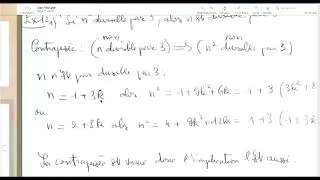 Si n² divisible par 3, alors n est divisible par 3
non non
Contraposée : (n divisible par 3) ⟹ (n² divisible par 3)
n n'est pas divisible par 3.
n = 1 + 3k alors n² = 1 + 9k² + 6k = 1 + 3 (3k² +
ou
n = 2 + 3k alors n² = 4 + 9k² + 12k = 1 + 3 (1 + 3k
La contraposée est vraie donc l'implication l'est aussi.